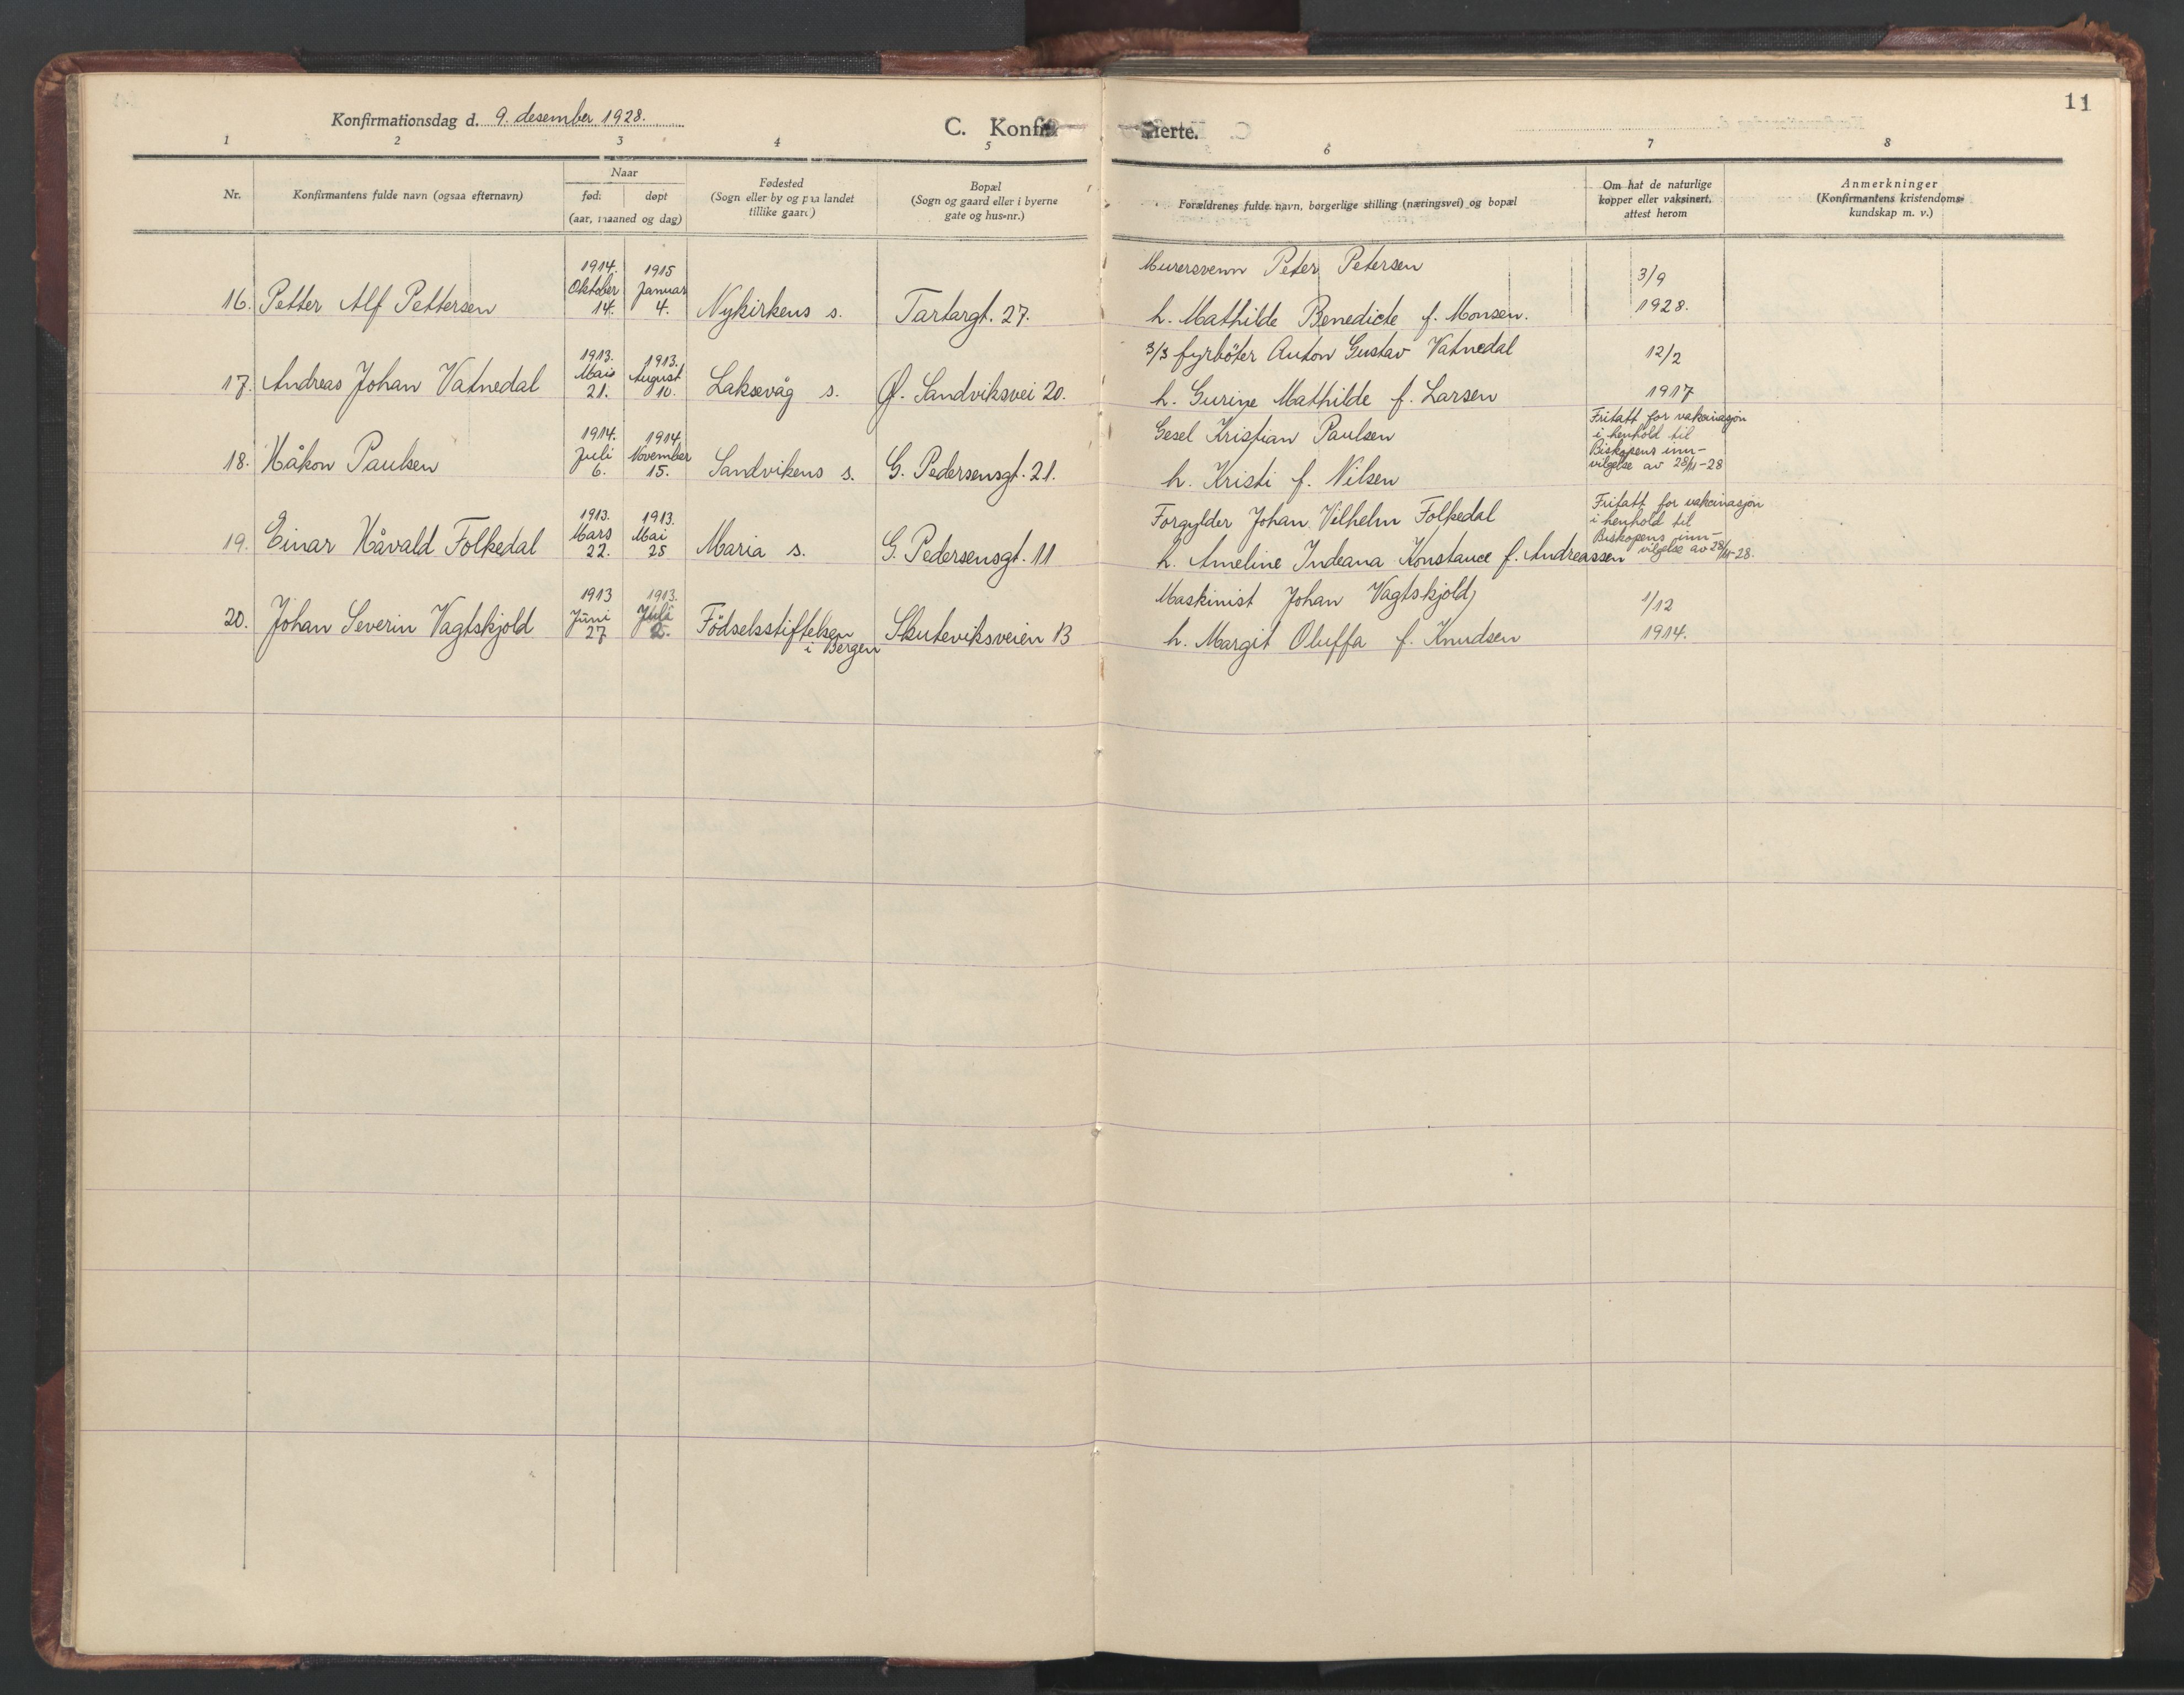 11
Konfirmationsdag d. 9. desember 1928.
C. Konfir merte.
1 2 3 4 5 6 7 8
Nr.
Konfirmantens fulde navn (ogsaa efternavn)
Naar
født døpt
(aar, maaned og dag)
Fødested
(Sogn eller by og paa landet
tillike gaard)
Bopæl
(Sogn og gaard eller i byerne
gate og hus-nr.)
Forældrenes fulde navn, borgerlige stilling (næringsvei) og bopæl
Om hat de naturlige
kopper eller vaksinert,
attest herom
Anmerkninger
(Konfirmantens kristendoms-
kundskap m. v.)
16. Petter Alf Pettersen
1914. Oktober 14.
1915 Januar 4.
Nykirkens s.
Tartargt. 27.
Murersvenn Peter Petersen
h. Mathilde Benedicte f. Monsen.
3/9
1928.
17. Andreas Johan Vatnedal
1913. Mais 21.
1913. August 10.
Laksevåg s.
Ø. Sandviksvei 20.
3/3 fyrböter Anton Gustav Vatnedal
h. Gurine Mathilde f. Larsen
12/2
1917
18. Håkon Paulsen
1914. Juli 6.
1914. November 15.
Sandvikens s.
G. Pedersensgt. 21.
Gesel Kristian Paulsen
h. Kristi f. Nilsen
Fritatt for vakcinasjon
i henhold til
Biskopens inn-
vilgelse av 28/11-28
19. Einar Håvald Folkedal
1913. Mars 22.
1913. Mai 25
Maria s.
G. Pedersensgt. 11
Forgylder Johan Vilhelm Folkedal
h. Ameline Indeana Konstance f. Andreassen
Fritatt for vakcinasjon
i henhold til
Biskopens inn-
vilgelse av 28/11-28.
20. Johan Severin Vagtskjold
1913 Juni 27
1913. Juli
Födselsstiftelsen
i Bergen
Skuteviksveien 13
Maskinist Johan Vagtskjold
h. Margit Oluffa f. Knudsen
1/12
1914.